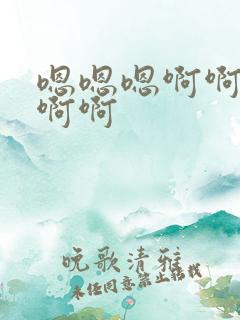 嗯嗯嗯啊啊
啊啊
晚歌清雅
未经同意禁止转载